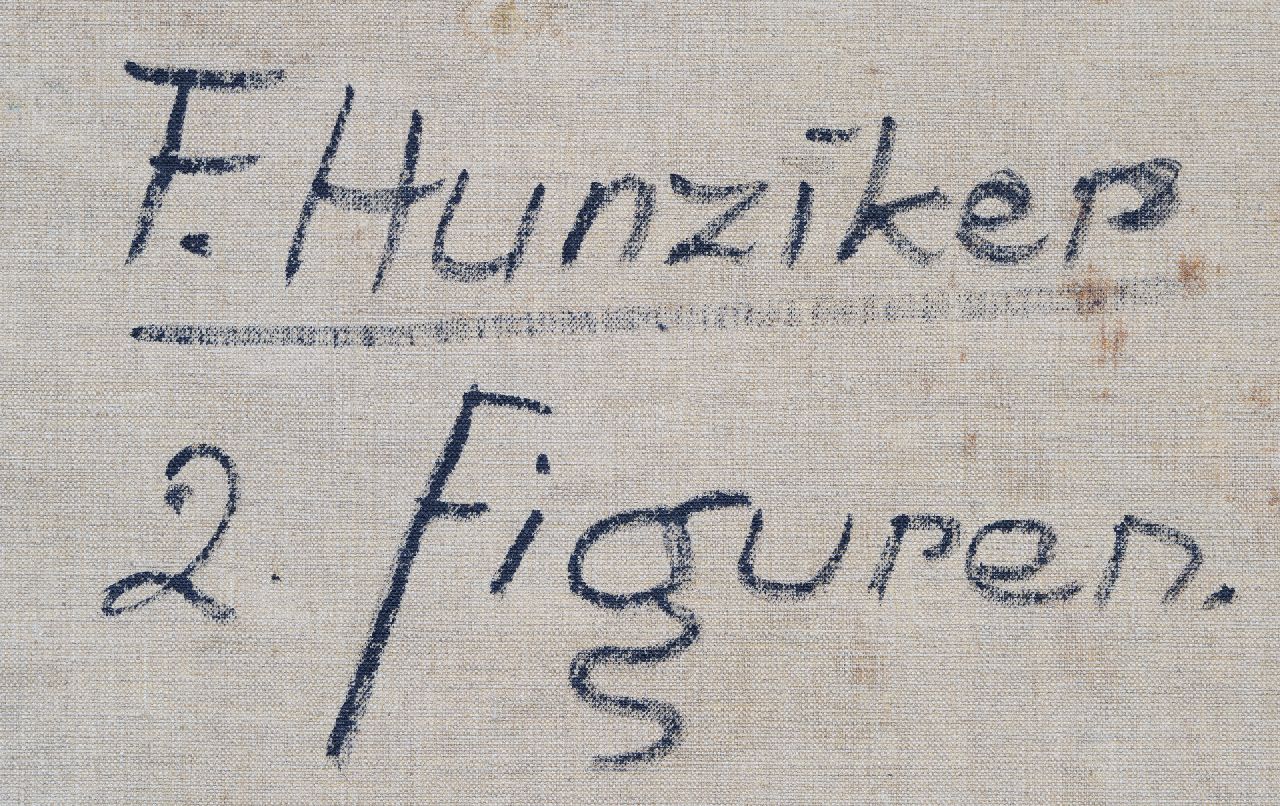 F. Hunziker
2. Figuren.